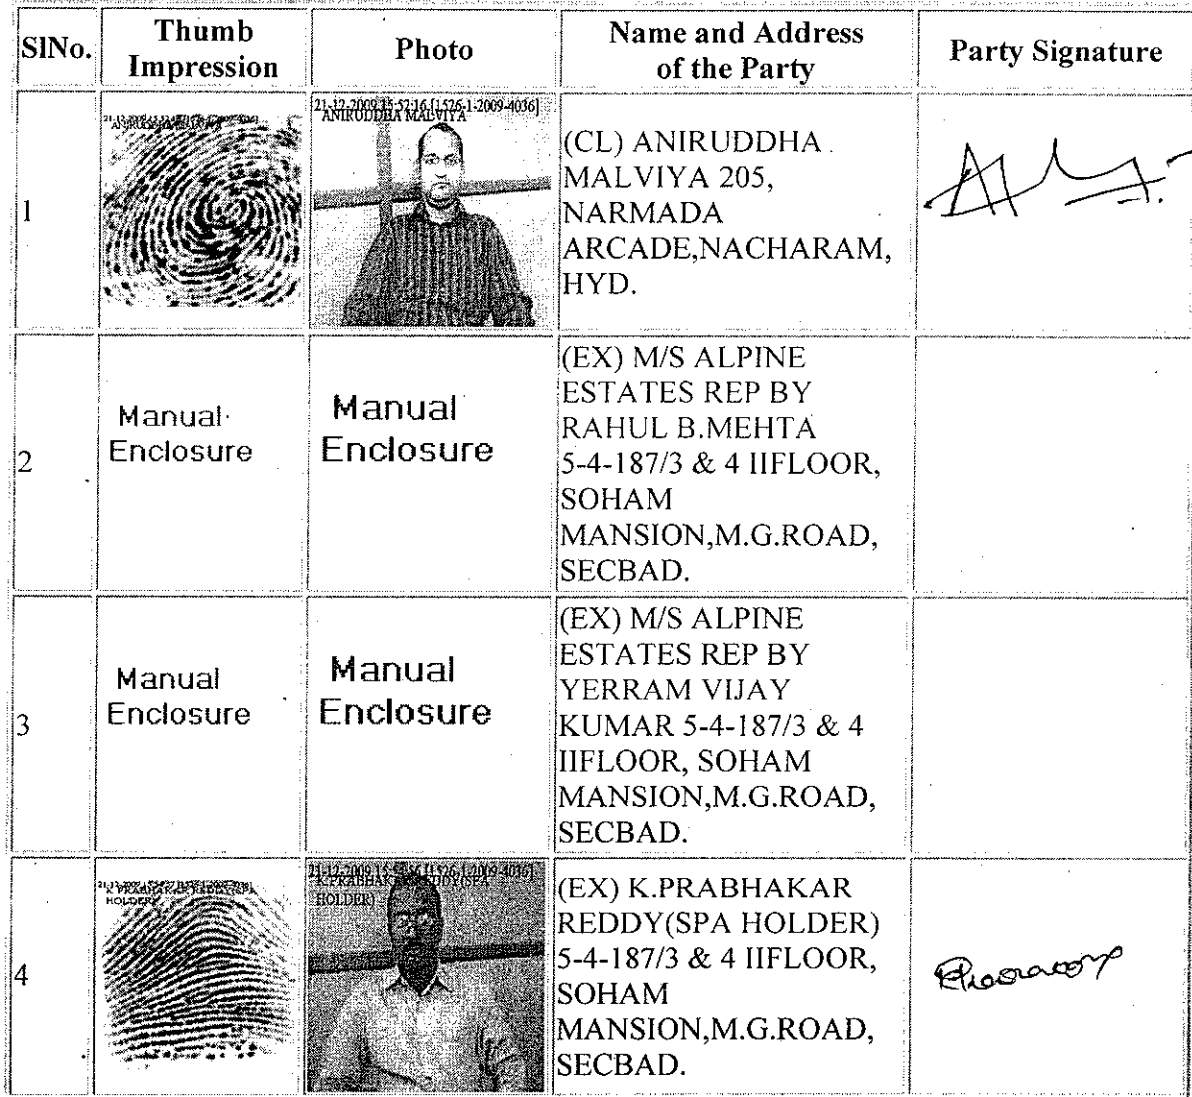 SlNo.
Thumb
Impression
Photo
Name and Address
of the Party
Party Signature
1
ANIRUDDHA MALVIYA
21-12-2009 15:52:16 [1526-1-2009-4036]
ANIRUDDHA MALVIYA
(CL) ANIRUDDHA
MALVIYA 205,
NARMADA
ARCADE,NACHARAM,
HYD.
2
Manual
Enclosure
Manual
Enclosure
(EX) M/S ALPINE
ESTATES REP BY
RAHUL B.MEHTA
5-4-187/3 & 4 IIFLOOR,
SOHAM
MANSION,M.G.ROAD,
SECBAD.
3
Manual
Enclosure
Manual
Enclosure
(EX) M/S ALPINE
ESTATES REP BY
YERRAM VIJAY
KUMAR 5-4-187/3 & 4
IIFLOOR, SOHAM
MANSION,M.G.ROAD,
SECBAD.
4
K.PRABHAKAR REDDY(SPA
HOLDER)
K.PRABHAKAR REDDY(SPA
HOLDER)
(EX) K.PRABHAKAR
REDDY(SPA HOLDER)
5-4-187/3 & 4 IIFLOOR,
SOHAM
MANSION,M.G.ROAD,
SECBAD.